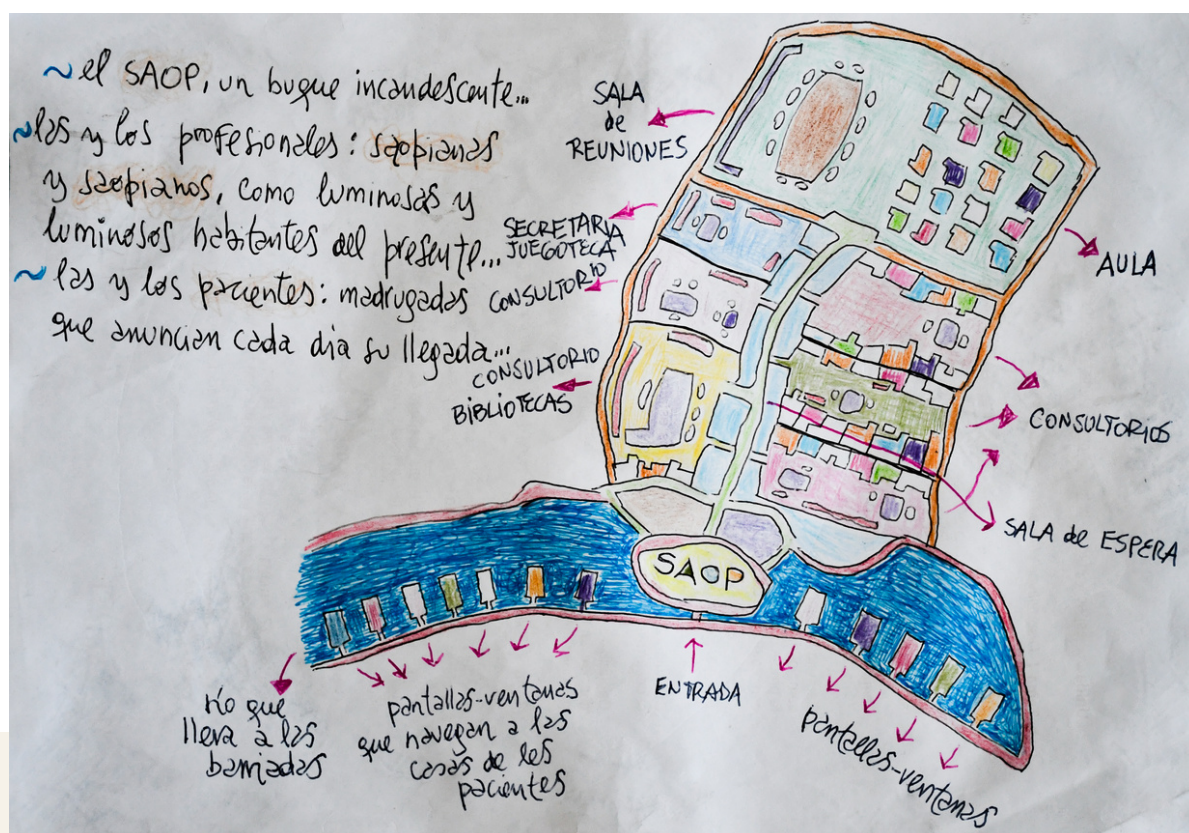 ~ el SAOP, un buque incandescente...
~ las y los profesionales: saopianas
y saopianos, como luminosas y
luminosos habitantes del presente...
~ las y los pacientes: madrugadas
que anuncian cada dia su llegada...
SALA
de
REUNIONES
SECRETARIA
JUEGOTECA
CONSULTORIO
CONSULTORIO
BIBLIOTECAS
AULA
CONSULTORIOS
SALA de ESPERA
SAOP
ENTRADA
río que
lleva a las
barriadas
pantallas-ventanas
que navegan a las
casas de les
pacientes
pantallas-ventanas